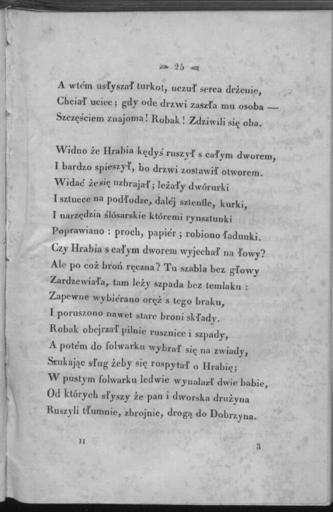 25
A wtém usłyszał turkot, uczuł serca drżenie,
Chciał uciec; gdy ode drzwi zaszła mu osoba —
Szczęściem znajoma! Robak! Zdziwili się oba.
Widno że Hrabia kędyś ruszył s całym dworem,
I bardzo spieszył, bo drzwi zostawił otworem.
Widać że się uzbrajał; leżały dwórurki
I sztucce na podłodze, daléj sztenfle, kurki,
I narzędzia ślósarskie któremi rynsztunki
Poprawiano: proch, papiér; robiono ładunki.
Czy Hrabia s całym dworem wyjechał na łowy?
Ale po coż broń ręczna? Tu szabla bez głowy
Zardzewiała, tam leży szpada bez temlaku:
Zapewne wybiérano oręż s tego braku,
I poruszono nawet stare broni składy.
Robak obejrzał pilnie rusznice i szpady,
A potém do folwarku wybrał się na zwiady,
Szukając sług żeby się rospytał o Hrabię;
W pustym folwarku ledwie wynalazł dwie babie,
Od których słyszy że pan i dworska drużyna
Ruszyli tłumnie, zbrojnie, drogą do Dobrzyna.
II 3